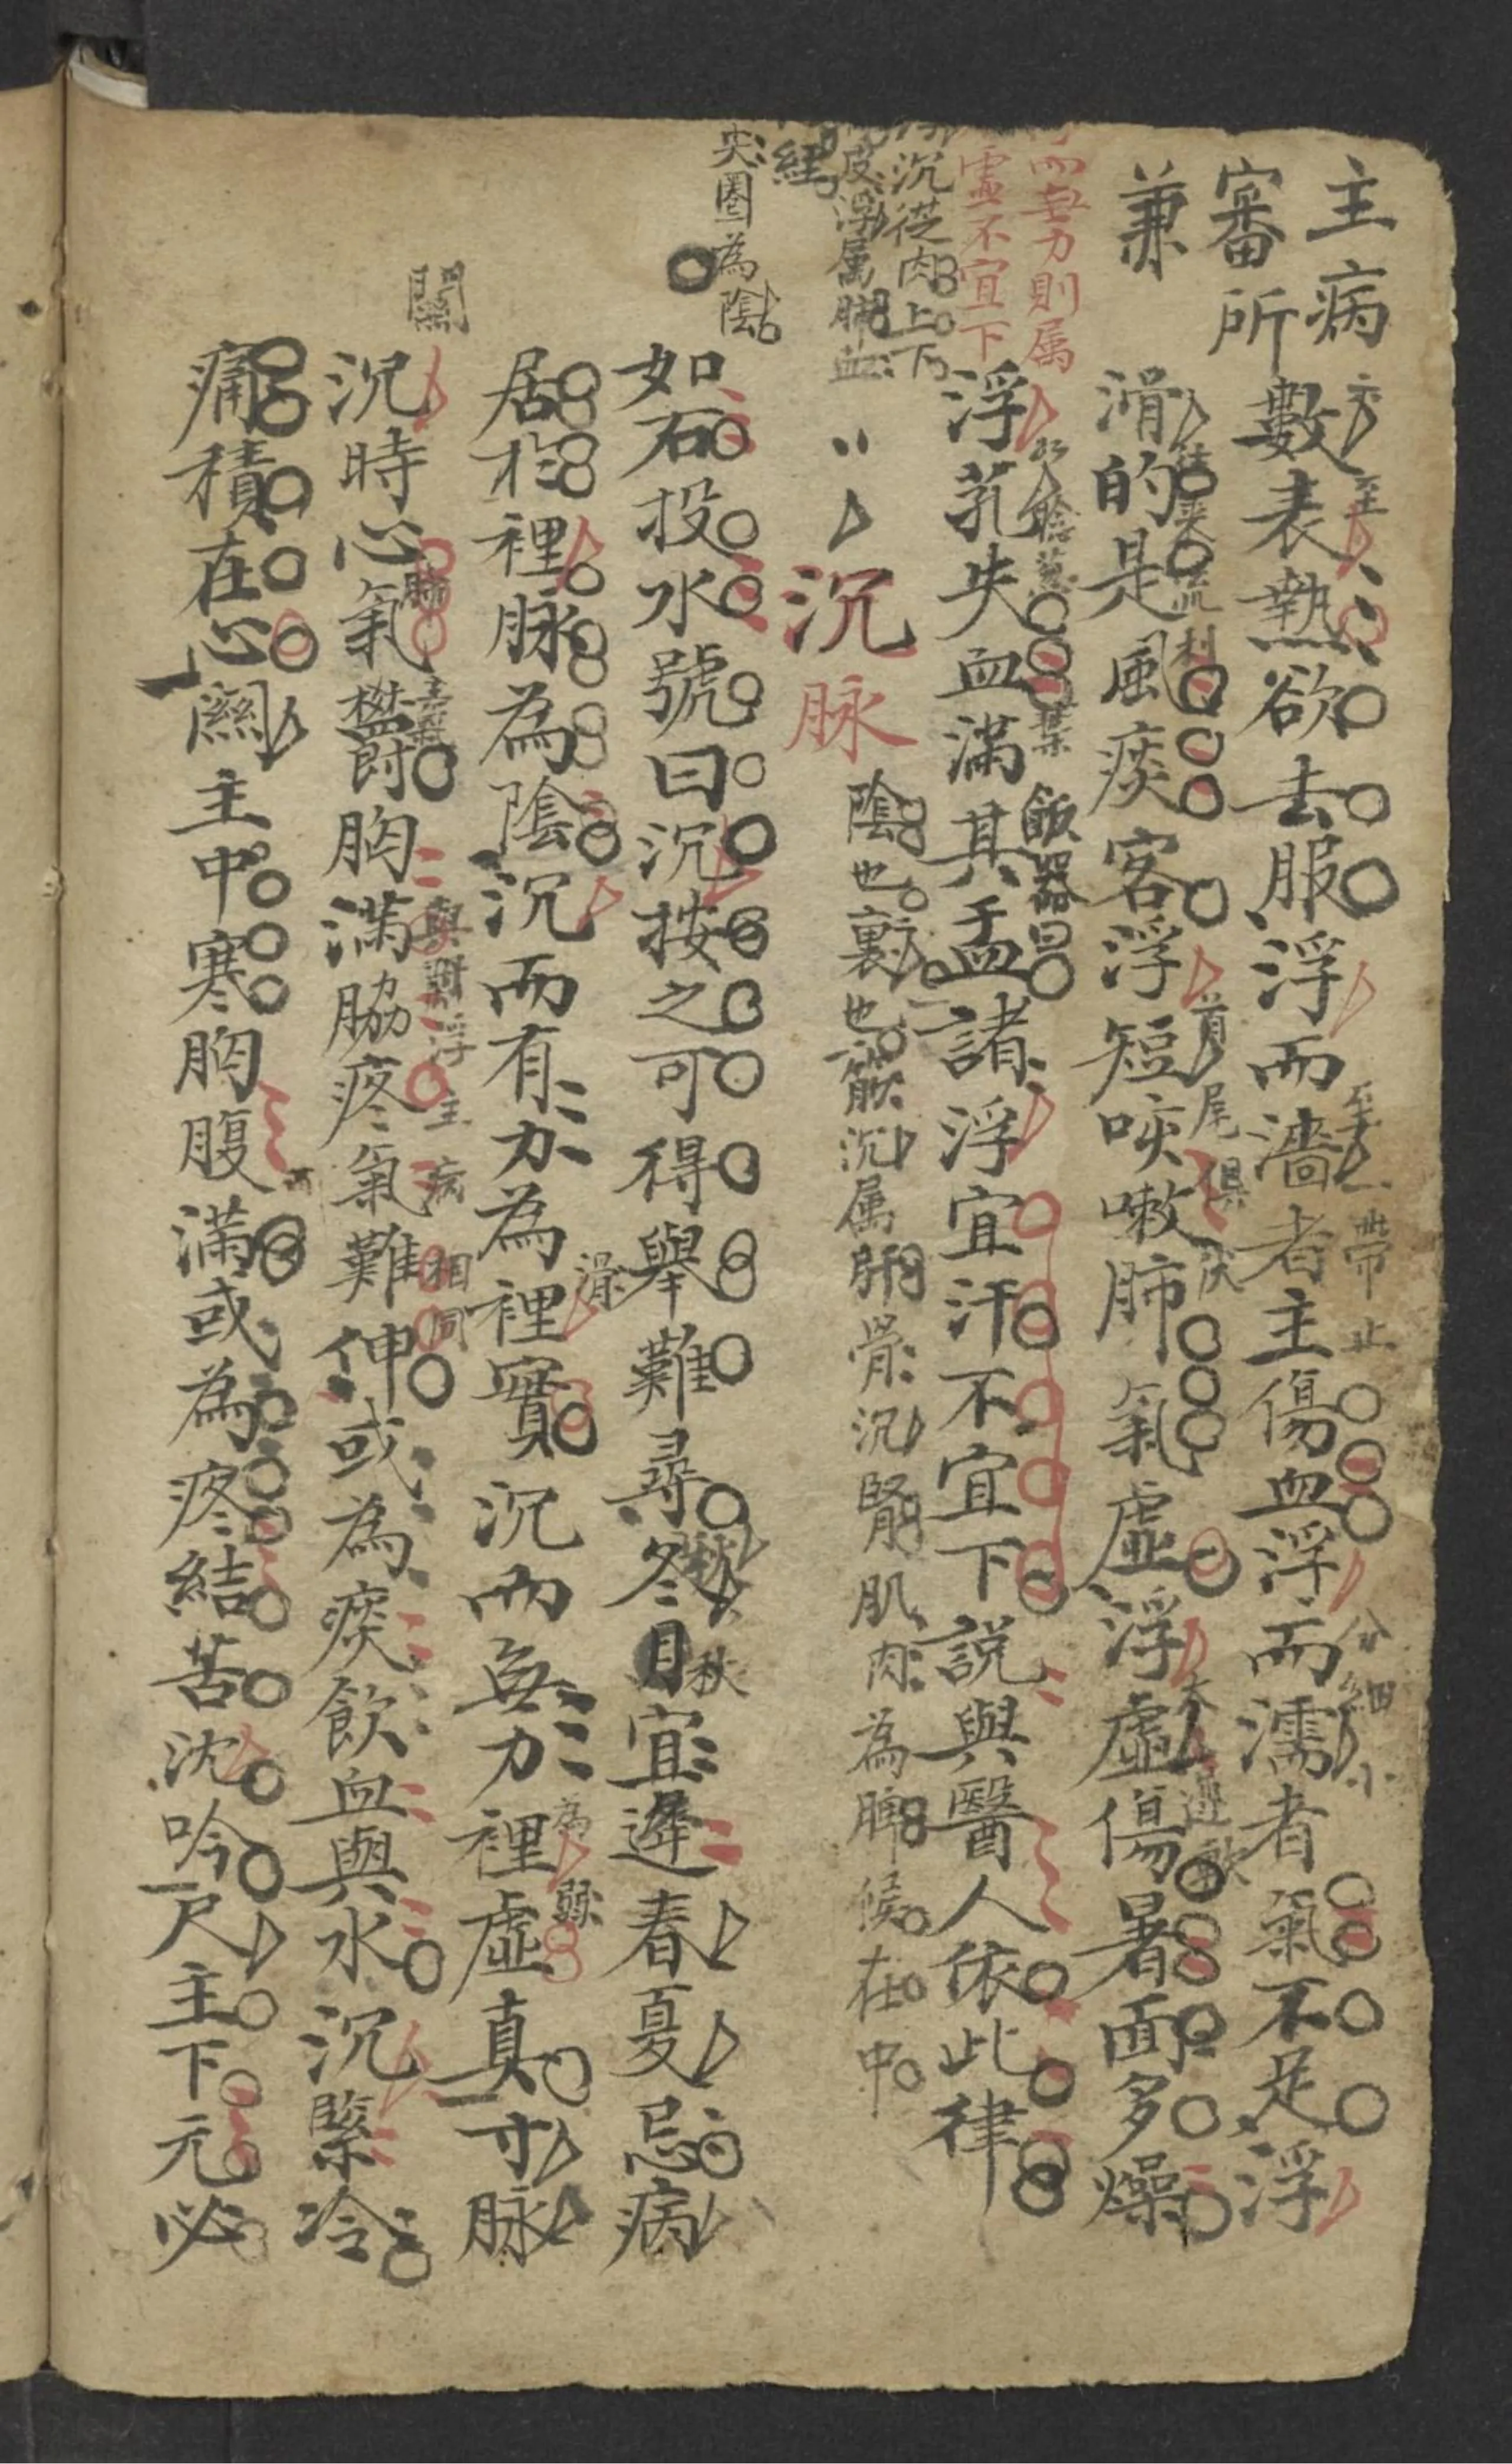 主病
審所
兼
數表熱欲去服浮而濇者主傷血浮而濡者氣不足浮
至
至一帶止
分細小
滑的是風痰客浮短咳嗽肺氣虛浮虛傷暑面多燥
流利
首尾俱
而無力則属
虛不宜下
浮芤失血滿其盂諸浮宜汗不宜下説與醫人依此律
葉
飯器曰
沉從肉上下
皮浮属肺血
經
沉脉
陰也裏也筋沉属肝骨沉腎肌肉為脾候在中
尖圈為陰
如石投水號曰沉按之可得舉難尋冬月宜遲春夏忌病
秋
居於裡脉為陰沉而有力為裡實沉而無力裡虛真寸脉
滑
為弱
關
沉時心氣鬱胸滿脇疼氣難伸或為痰飲血與水沉緊冷
肺
與對浮主病相同
痛積在心關主中寒胸腹滿或為疼結苦沈吟尺主下元必